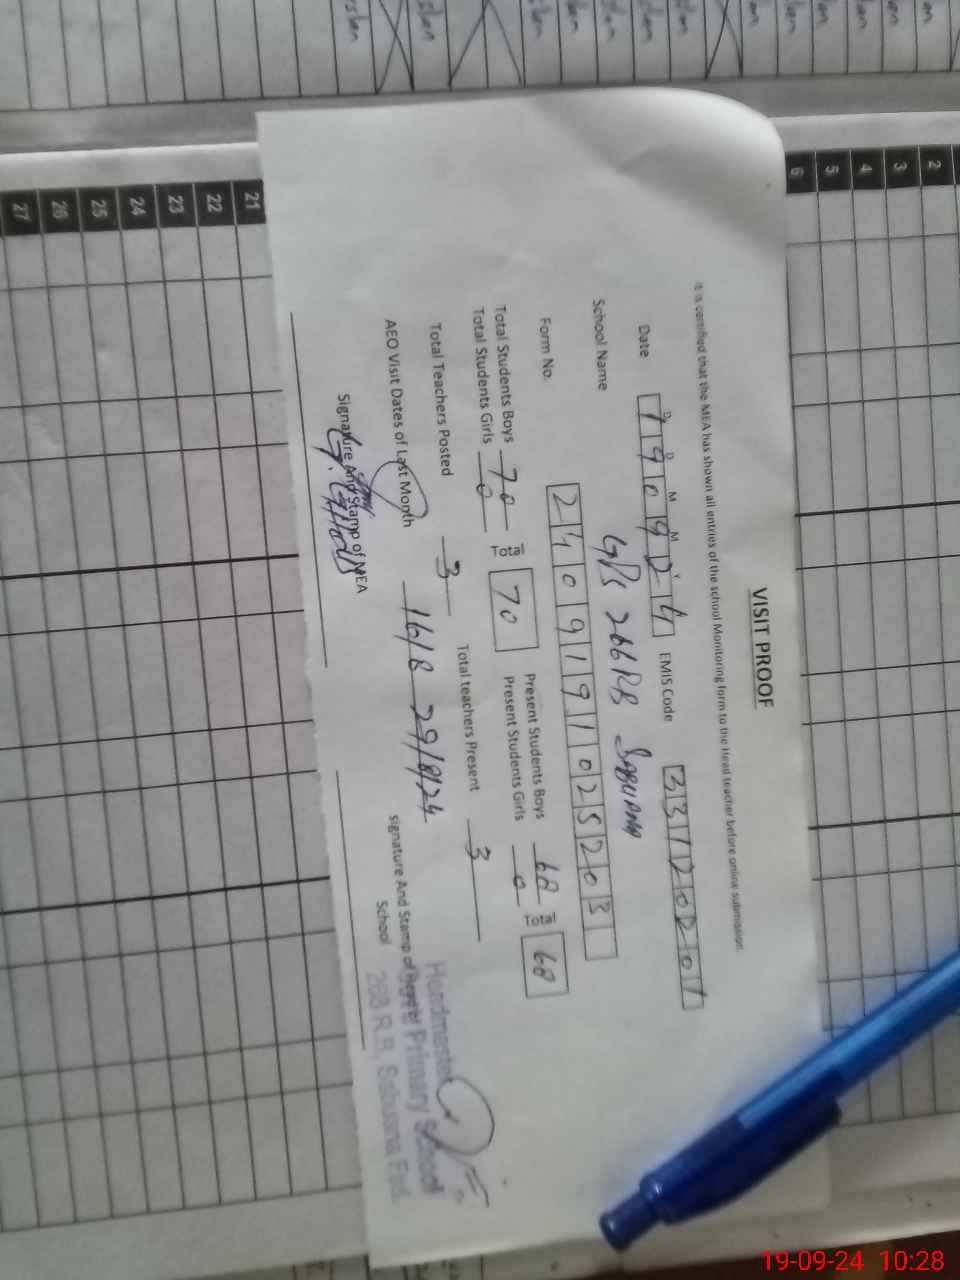 VISIT PROOF
It is certified that the MEA has shown all entries of the school Monitoring form to the Head teacher before online submission.
D D M M Y
Date 190924 EMIS Code 33120201
School Name GPS 266RB SABUANA
Form No. 2409191025203
Total Students Boys 70 Total 70 Present Students Boys 68 Total 68
Total Students Girls 0 Present Students Girls 0
Total Teachers Posted 3 Total teachers Present 3
AEO Visit Dates of Last Month 16/8 29/8/24
Signature And Stamp of MEA signature And Stamp of
School
Headmaster
Primary School
R.B,
2
3
4
5
6
21
22
23
24
25
26
27
19-09-24 10:28